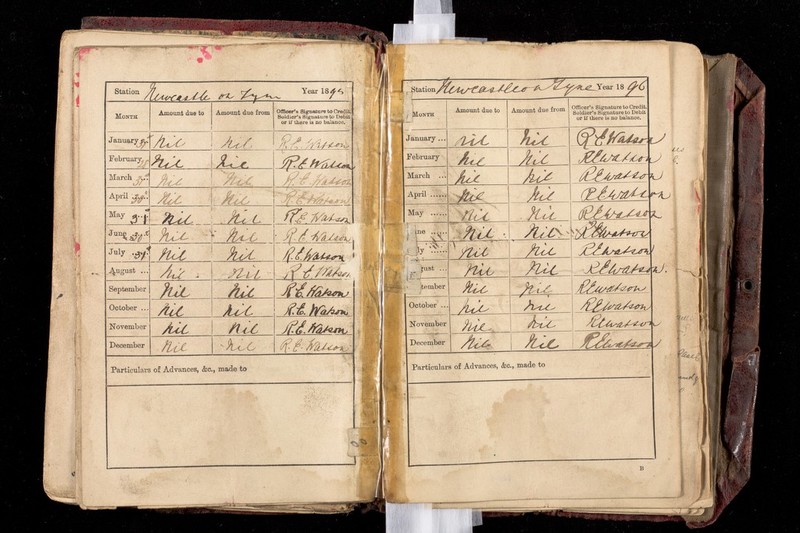 Station Newcastle on Tyne Year 1895
MONTH Amount due to Amount due from Officer's Signature to Credit. Soldier's Signature to Debit or if there is no balance.
January 31st Nil Nil R.E. Watson
February Nil Nil R.E. Watson
March 31st Nil Nil R.E. Watson
April 30th Nil Nil R.E. Watson
May 31st Nil Nil R.E. Watson
June 30th Nil Nil R.E. Watson
July 31st Nil Nil R.E. Watson
August ... Nil Nil R.E. Watson
September Nil Nil R.E. Watson
October ... Nil Nil R.E. Watson
November Nil Nil R.E. Watson
December Nil Nil R.E. Watson
Particulars of Advances, &c., made to
Station Newcastle on Tyne Year 1896
MONTH Amount due to Amount due from Officer's Signature to Credit. Soldier's Signature to Debit or if there is no balance.
January ... Nil Nil R E Watson
February Nil Nil R E Watson
March ... Nil Nil R E Watson
April ...... Nil Nil R E Watson
May ...... Nil Nil R E Watson
une ...... Nil Nil R E Watson
ly ...... Nil Nil R E Watson
gust ... Nil Nil R E Watson.
tember Nil Nil R E Watson
October ... Nil Nil R E Watson
November Nil Nil R E Watson
December Nil Nil R E Watson
Particulars of Advances, &c., made to
B